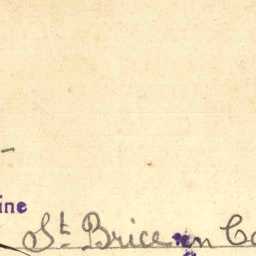 ine
St Brice en Co